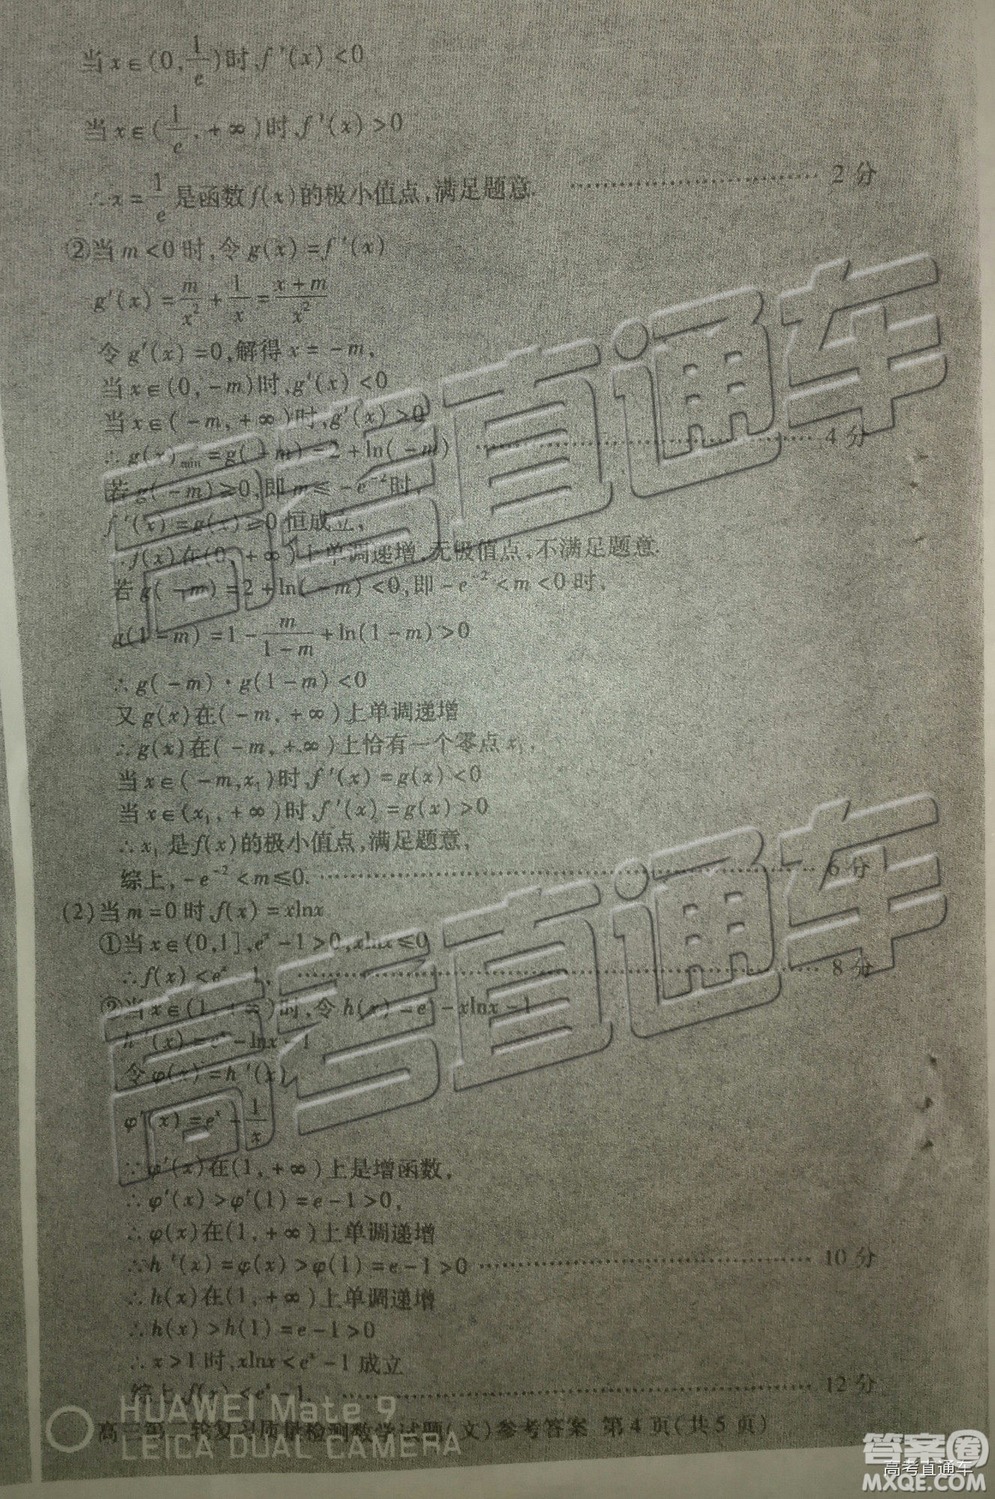 当x∈(0,1/e)时,f'(x)<0
当x∈(1/e,+∞)时,f'(x)>0
∴x=1/e是函数f(x)的极小值点,满足题意. ………… 2分
②当m<0时,令g(x)=f'(x)
g'(x)=m/x²+1/x=(x+m)/x²
令g'(x)=0,解得x=-m,
当x∈(0,-m)时,g'(x)<0
当x∈(-m,+∞)时,g'(x)>0
∴g(x)min=g(-m)=2+ln(-m) ………… 4分
若g(-m)≥0,即m≤-e⁻²时,
f'(x)=g(x)≥0恒成立,
f(x)在(0,+∞)上单调递增,无极值点,不满足题意.
若g(-m)=2+ln(-m)<0,即-e⁻²<m<0时,
g(1-m)=1-m/(1-m)+ln(1-m)>0
∴g(-m)·g(1-m)<0
又g(x)在(-m,+∞)上单调递增
∴g(x)在(-m,+∞)上恰有一个零点x₁,
当x∈(-m,x₁)时,f'(x)=g(x)<0
当x∈(x₁,+∞)时,f'(x)=g(x)>0
∴x₁是f(x)的极小值点,满足题意,
综上,-e⁻²<m≤0. ………… 6分
(2)当m=0时,f(x)=xlnx
①当x∈(0,1],eˣ-1>0,xlnx≤0
∴f(x)<eˣ-1, ………… 8分
②当x∈(1,+∞)时,令h(x)=eˣ-xlnx-1
h'(x)=eˣ-lnx-1
令φ(x)=h'(x),
φ'(x)=eˣ-1/x
∵φ'(x)在(1,+∞)上是增函数,
∴φ'(x)>φ'(1)=e-1>0,
∴φ(x)在(1,+∞)上单调递增
∴h'(x)=φ(x)>φ(1)=e-1>0 ………… 10分
∴h(x)在(1,+∞)上单调递增
∴h(x)>h(1)=e-1>0
∴x>1时,xlnx<eˣ-1成立
综上,f(x)<eˣ-1. ………… 12分
高三第二轮复习质量检测数学试题(文)参考答案 第4页(共5页)
高考直通车
高考直通车
HUAWEI Mate 9
LEICA DUAL CAMERA
答案圈
高考直通车
MXQE.COM